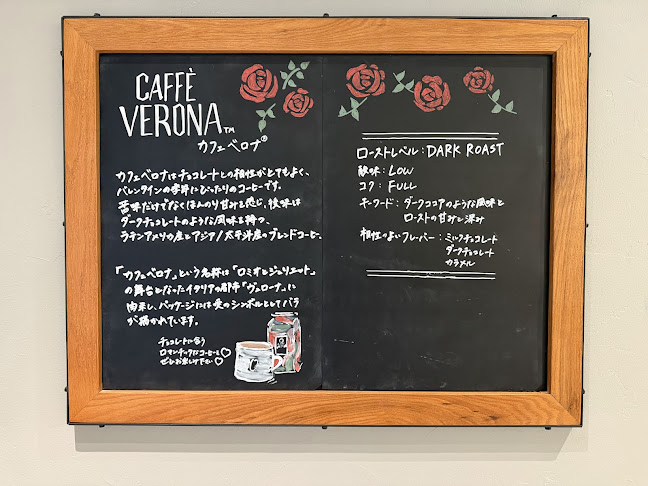 CAFFÈ
VERONA™
カフェベロナ®
カフェベロナはチョコレートとの相性がとてもよく、
バレンタインの季節にぴったりのコーヒーです。
苦味だけでなくほんのり甘みを感じ、後味は
ダークチョコレートのような風味を持つ、
ラテンアメリカ産とアジア/太平洋産のブレンドコーヒー。
「カフェベロナ」という名称は「ロミオとジュリエット」
の舞台となったイタリアの都市「ヴェローナ」に
由来し、パッケージには愛のシンボルとしてバラ
が描かれています。
チョコレートに合う
ロマンチックなコーヒーを♡
ぜひお楽しみ下さい♡
ローストレベル：DARK ROAST
酸味：LOW
コク：FULL
キーワード：ダークココアのような風味と
ローストの甘みと深み
相性のよいフレーバー：ミルクチョコレート
ダークチョコレート
カラメル